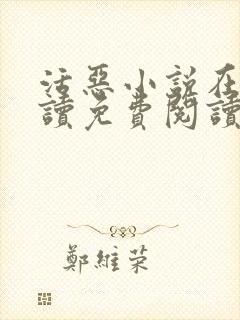 活惡小說在
讀免費閱讀
鄭維荣